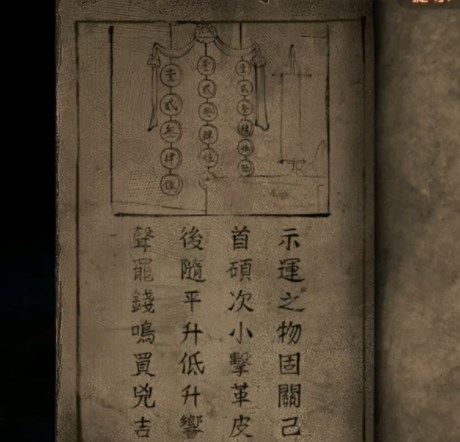 壹貳叁肆伍
示運之物固關己
首碩次小擊革皮
後隨平升低升響
聲罷錢鳴買兇吉